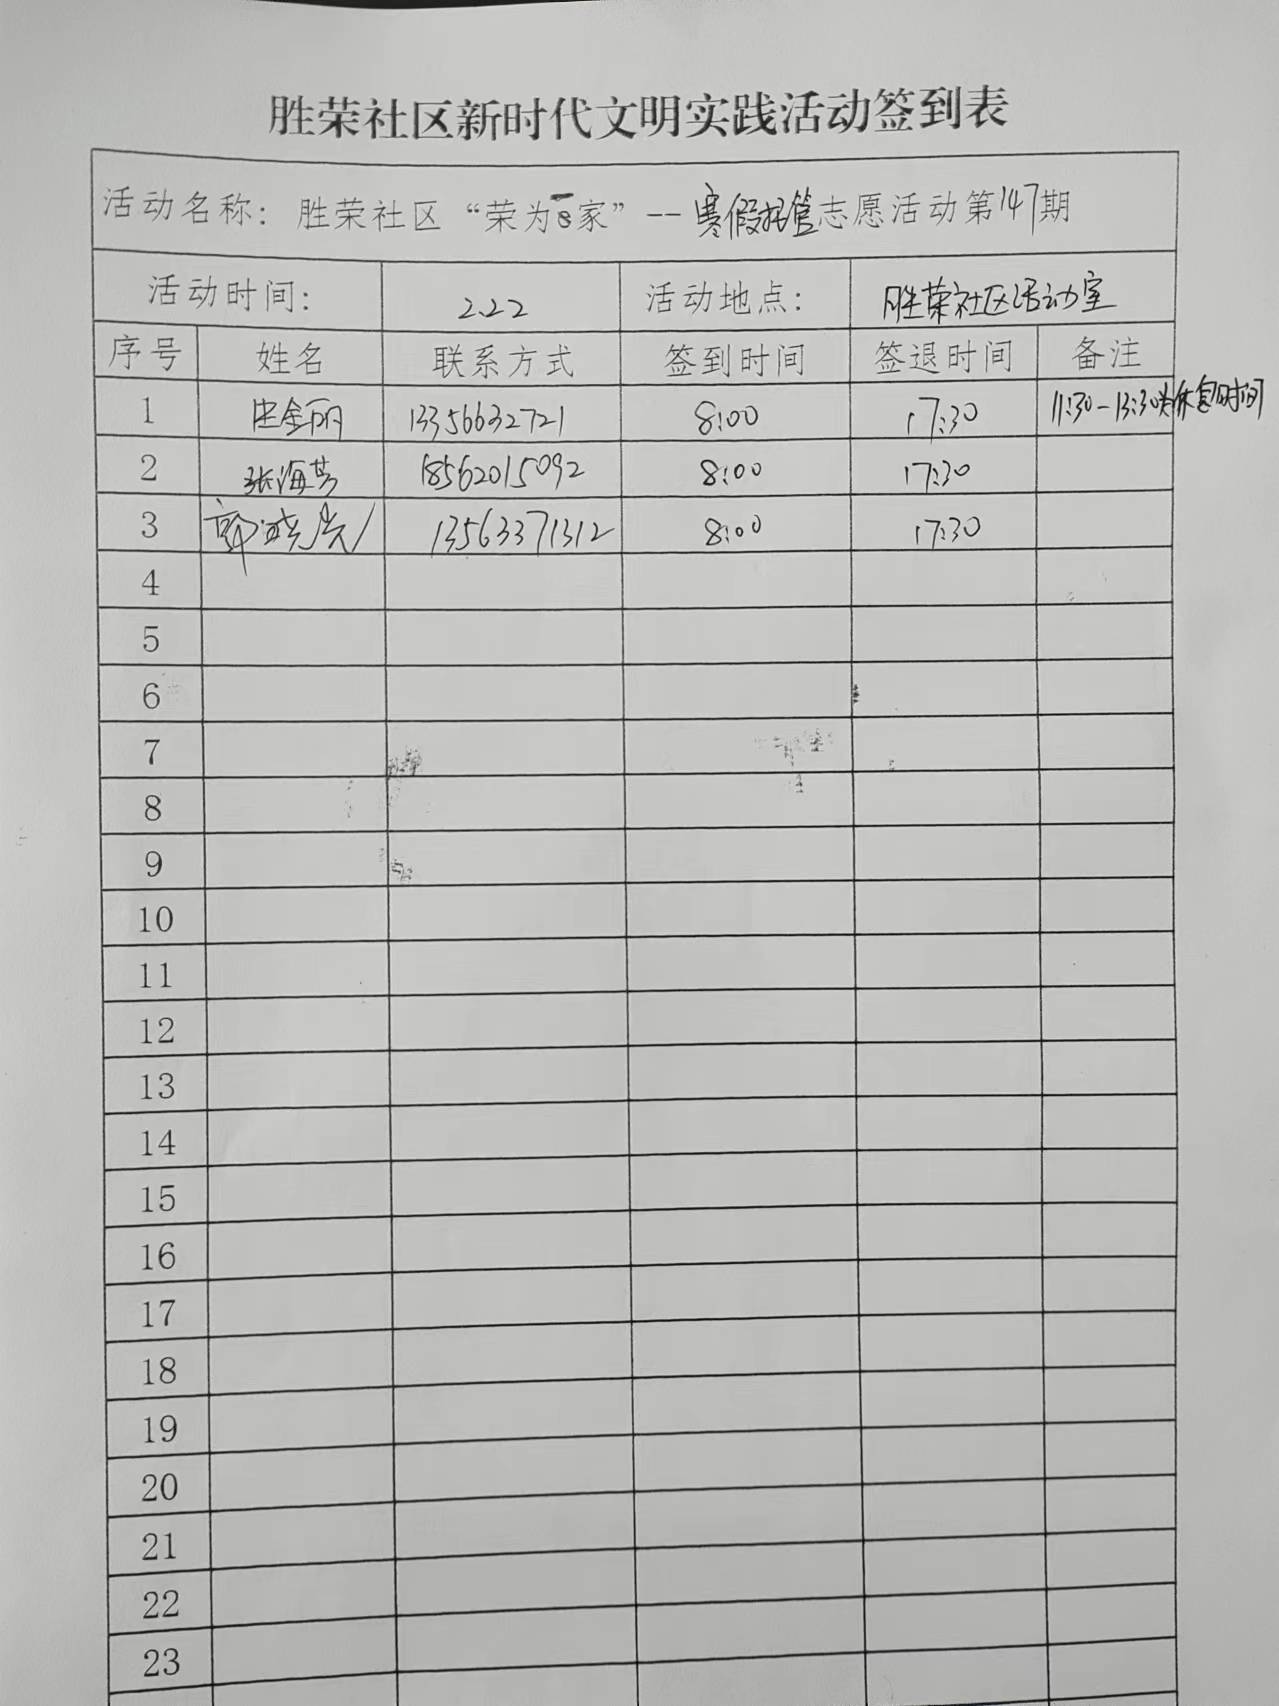 胜荣社区新时代文明实践活动签到表
活动名称：胜荣社区“荣为e家”--寒假托管志愿活动第147期
活动时间： 2.22 活动地点： 胜荣社区活动室
序号 姓名 联系方式 签到时间 签退时间 备注
1 金丽 13356632721 8:00 17:30 11:30-13:30为休息时间
2 张海芳 18562015092 8:00 17:30
3 郭晓亮 13563371312 8:00 17:30
4
5
6
7
8
9
10
11
12
13
14
15
16
17
18
19
20
21
22
23